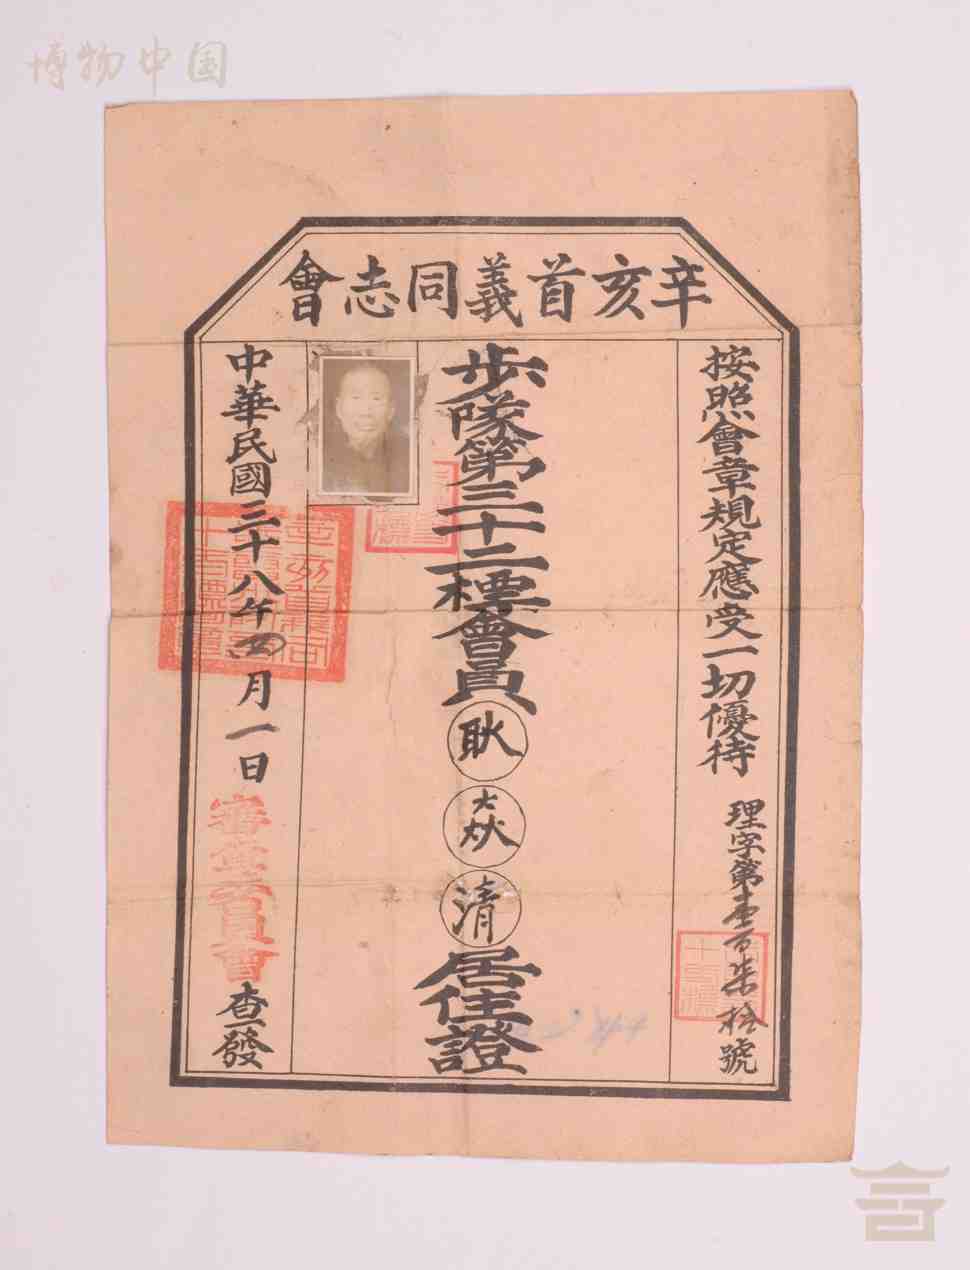 博物中国
辛亥首義同志會
按照會章規定應受一切優待
理字第壹百柒拾號
步隊第三十二標會員耿焱清居住證
中華民國三十八年四月一日
審查委員會查發